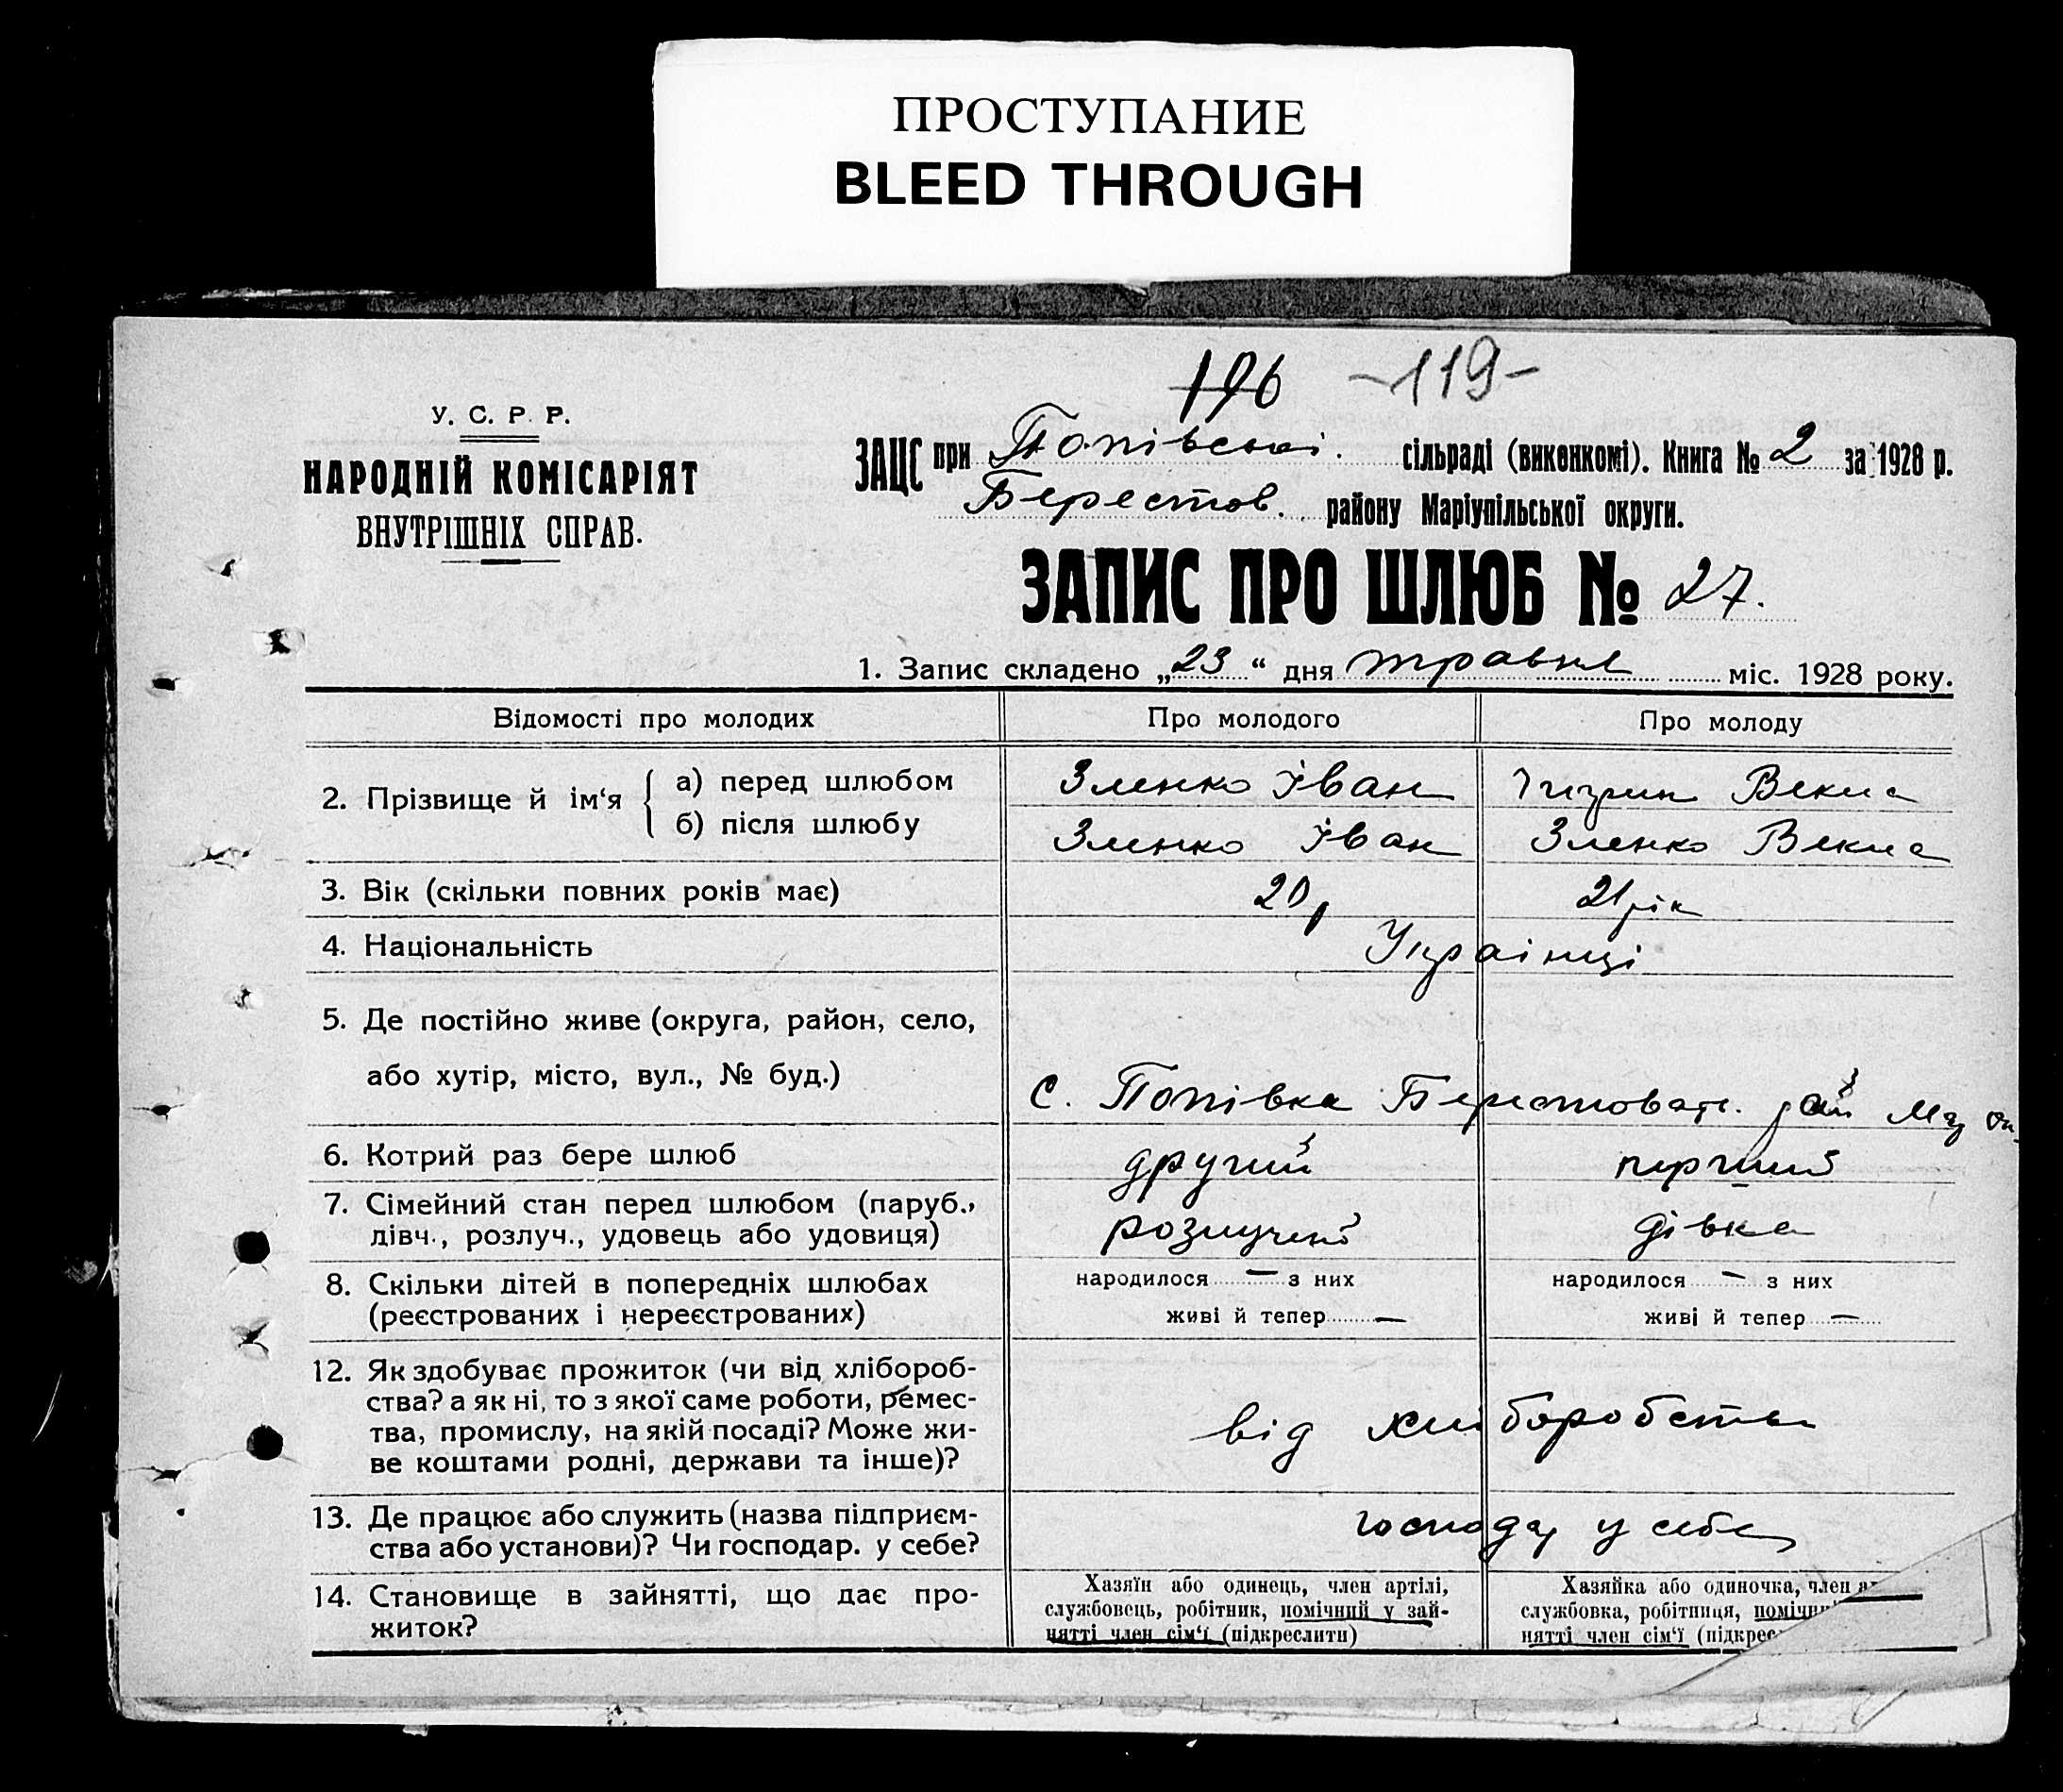 ПРОСТУПАНИЕ
BLEED THROUGH
196 -119-
У. С. Р. Р.
НАРОДНІЙ КОМІСАРІЯТ
ВНУТРІШНІХ СПРАВ.
ЗАЦС при Попівські. сільраді (виконкомі). Книга № 2 за 1928 р.
Берестов. району Маріупільської округи.
ЗАПИС ПРО ШЛЮБ № 27.
1. Запис складено „23“ дня травня міс. 1928 року.
Відомості про молодих Про молодого Про молоду
2. Прізвище й ім‘я а) перед шлюбом Зленко Іван Векла
б) після шлюбу Зленко Іван Зленко Векла
3. Вік (скільки повних років має) 20р 21 рік
4. Національність Українці
5. Де постійно живе (округа, район, село,
або хутір, місто, вул., № буд.) С. Попівка Берестоват. рай
6. Котрий раз бере шлюб другий перший
7. Сімейний стан перед шлюбом (паруб.,
дівч., розлуч., удовець або удовиця) розлучений дівка
8. Скільки дітей в попередніх шлюбах народилося — з них народилося — з них
(реєстрованих і нереєстрованих) живі й тепер — живі й тепер —
12. Як здобуває прожиток (чи від хлібороб-
ства? а як ні, то з якої саме роботи, ремес-
тва, промислу, на якій посаді? Може жи- від хліборобства
ве коштами родні, держави та інше)?
13. Де працює або служить (назва підприєм-
ства або установи)? Чи господар. у себе? господар у себе
14. Становище в зайнятті, що дає про-
житок?
Хазяїн або одинець, член артілі,
службовець, робітник, помічний у зай-
нятті член сім‘ї (підкреслити)
Хазяйка або одиночка, член
службовка, робітниця,
нятті член сім‘ї